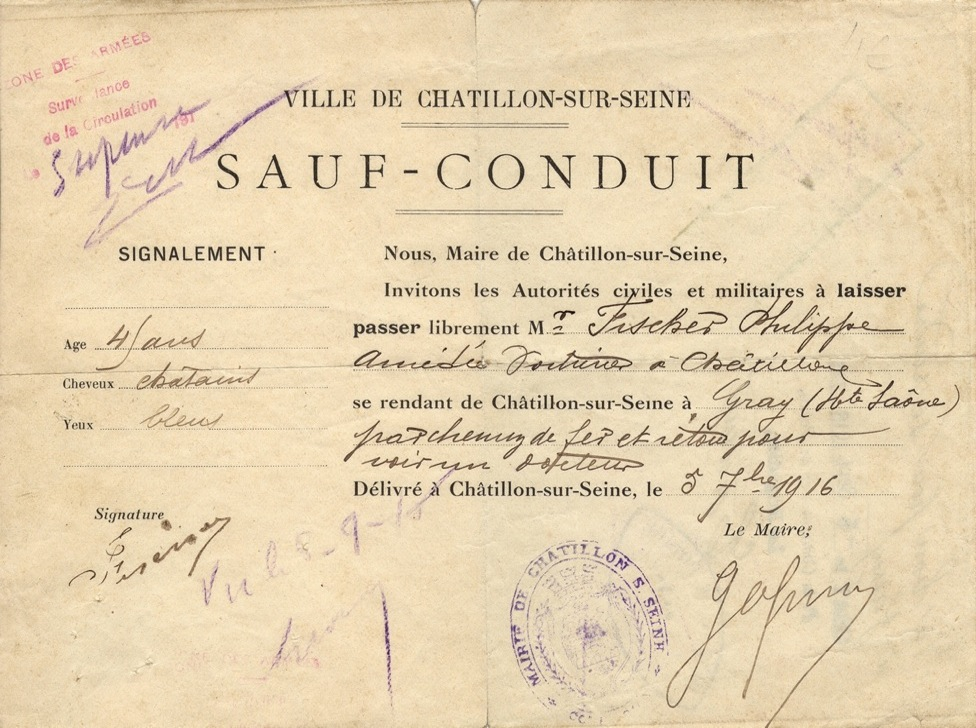 ZONE DES ARMÉES
Surveillance
de la Circulation
191
VILLE DE CHATILLON-SUR-SEINE
SAUF-CONDUIT
SIGNALEMENT
Age 41 ans
Cheveux chatains
Yeux bleus
Signature
Fischer
Nous, Maire de Châtillon-sur-Seine,
Invitons les Autorités civiles et militaires à laisser
passer librement Mr Fischer Philippe
Amédée Voiturier à Châtillon
se rendant de Châtillon-sur-Seine à Gray (Hte Saône)
par chemin de fer et retour pour
voir un docteur
Délivré à Châtillon-sur-Seine, le 5 7bre 1916
Le Maire,
MAIRIE DE CHATILLON S. SEINE
Vu le